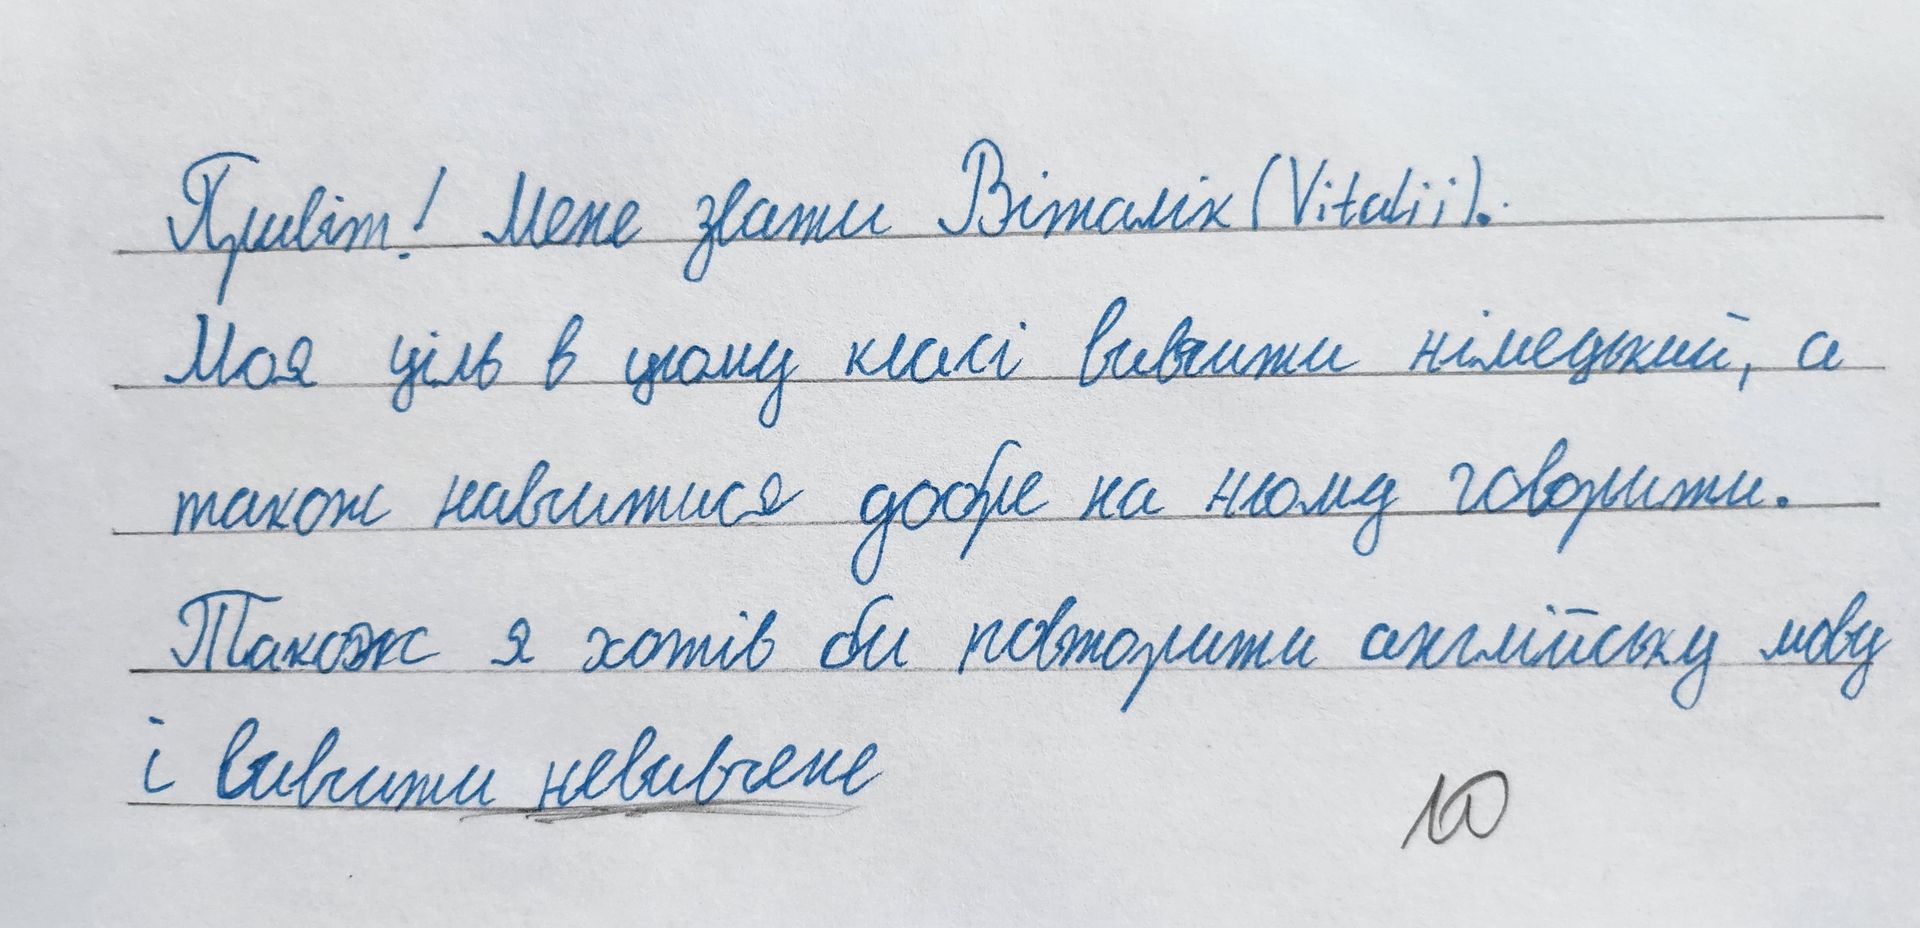 Привіт! Мене звати Віталік (Vitalii).
Моя ціль в цьому класі вивчити німецький, а
також навчитися добре на ньому говорити.
Також я хотів би повторити англійську мову
і вивчити невивчене
10